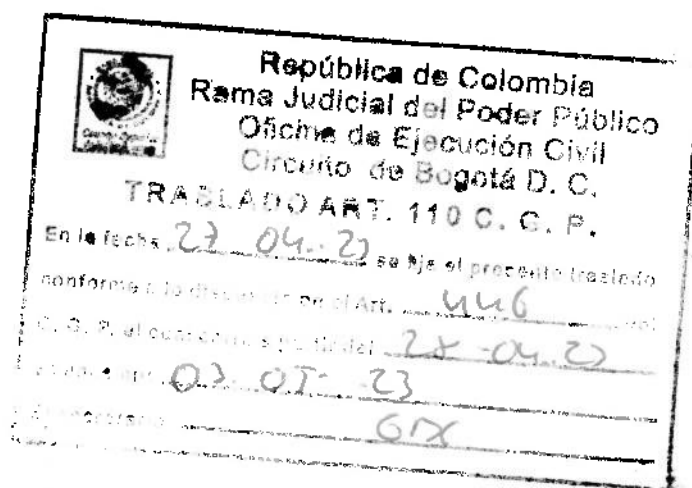 República de Colombia
Rama Judicial del Poder Público
Oficina de Ejecución Civil
Circuito de Bogotá D. C.
TRASLADO ART. 110 C. G. P.
En la fecha 27 04. 23 se fija el presente traslado
conforme a lo dispuesto en el Art. 446 del
C. G. P. el cual corre a partir del 28 -04. 23
03 05 23